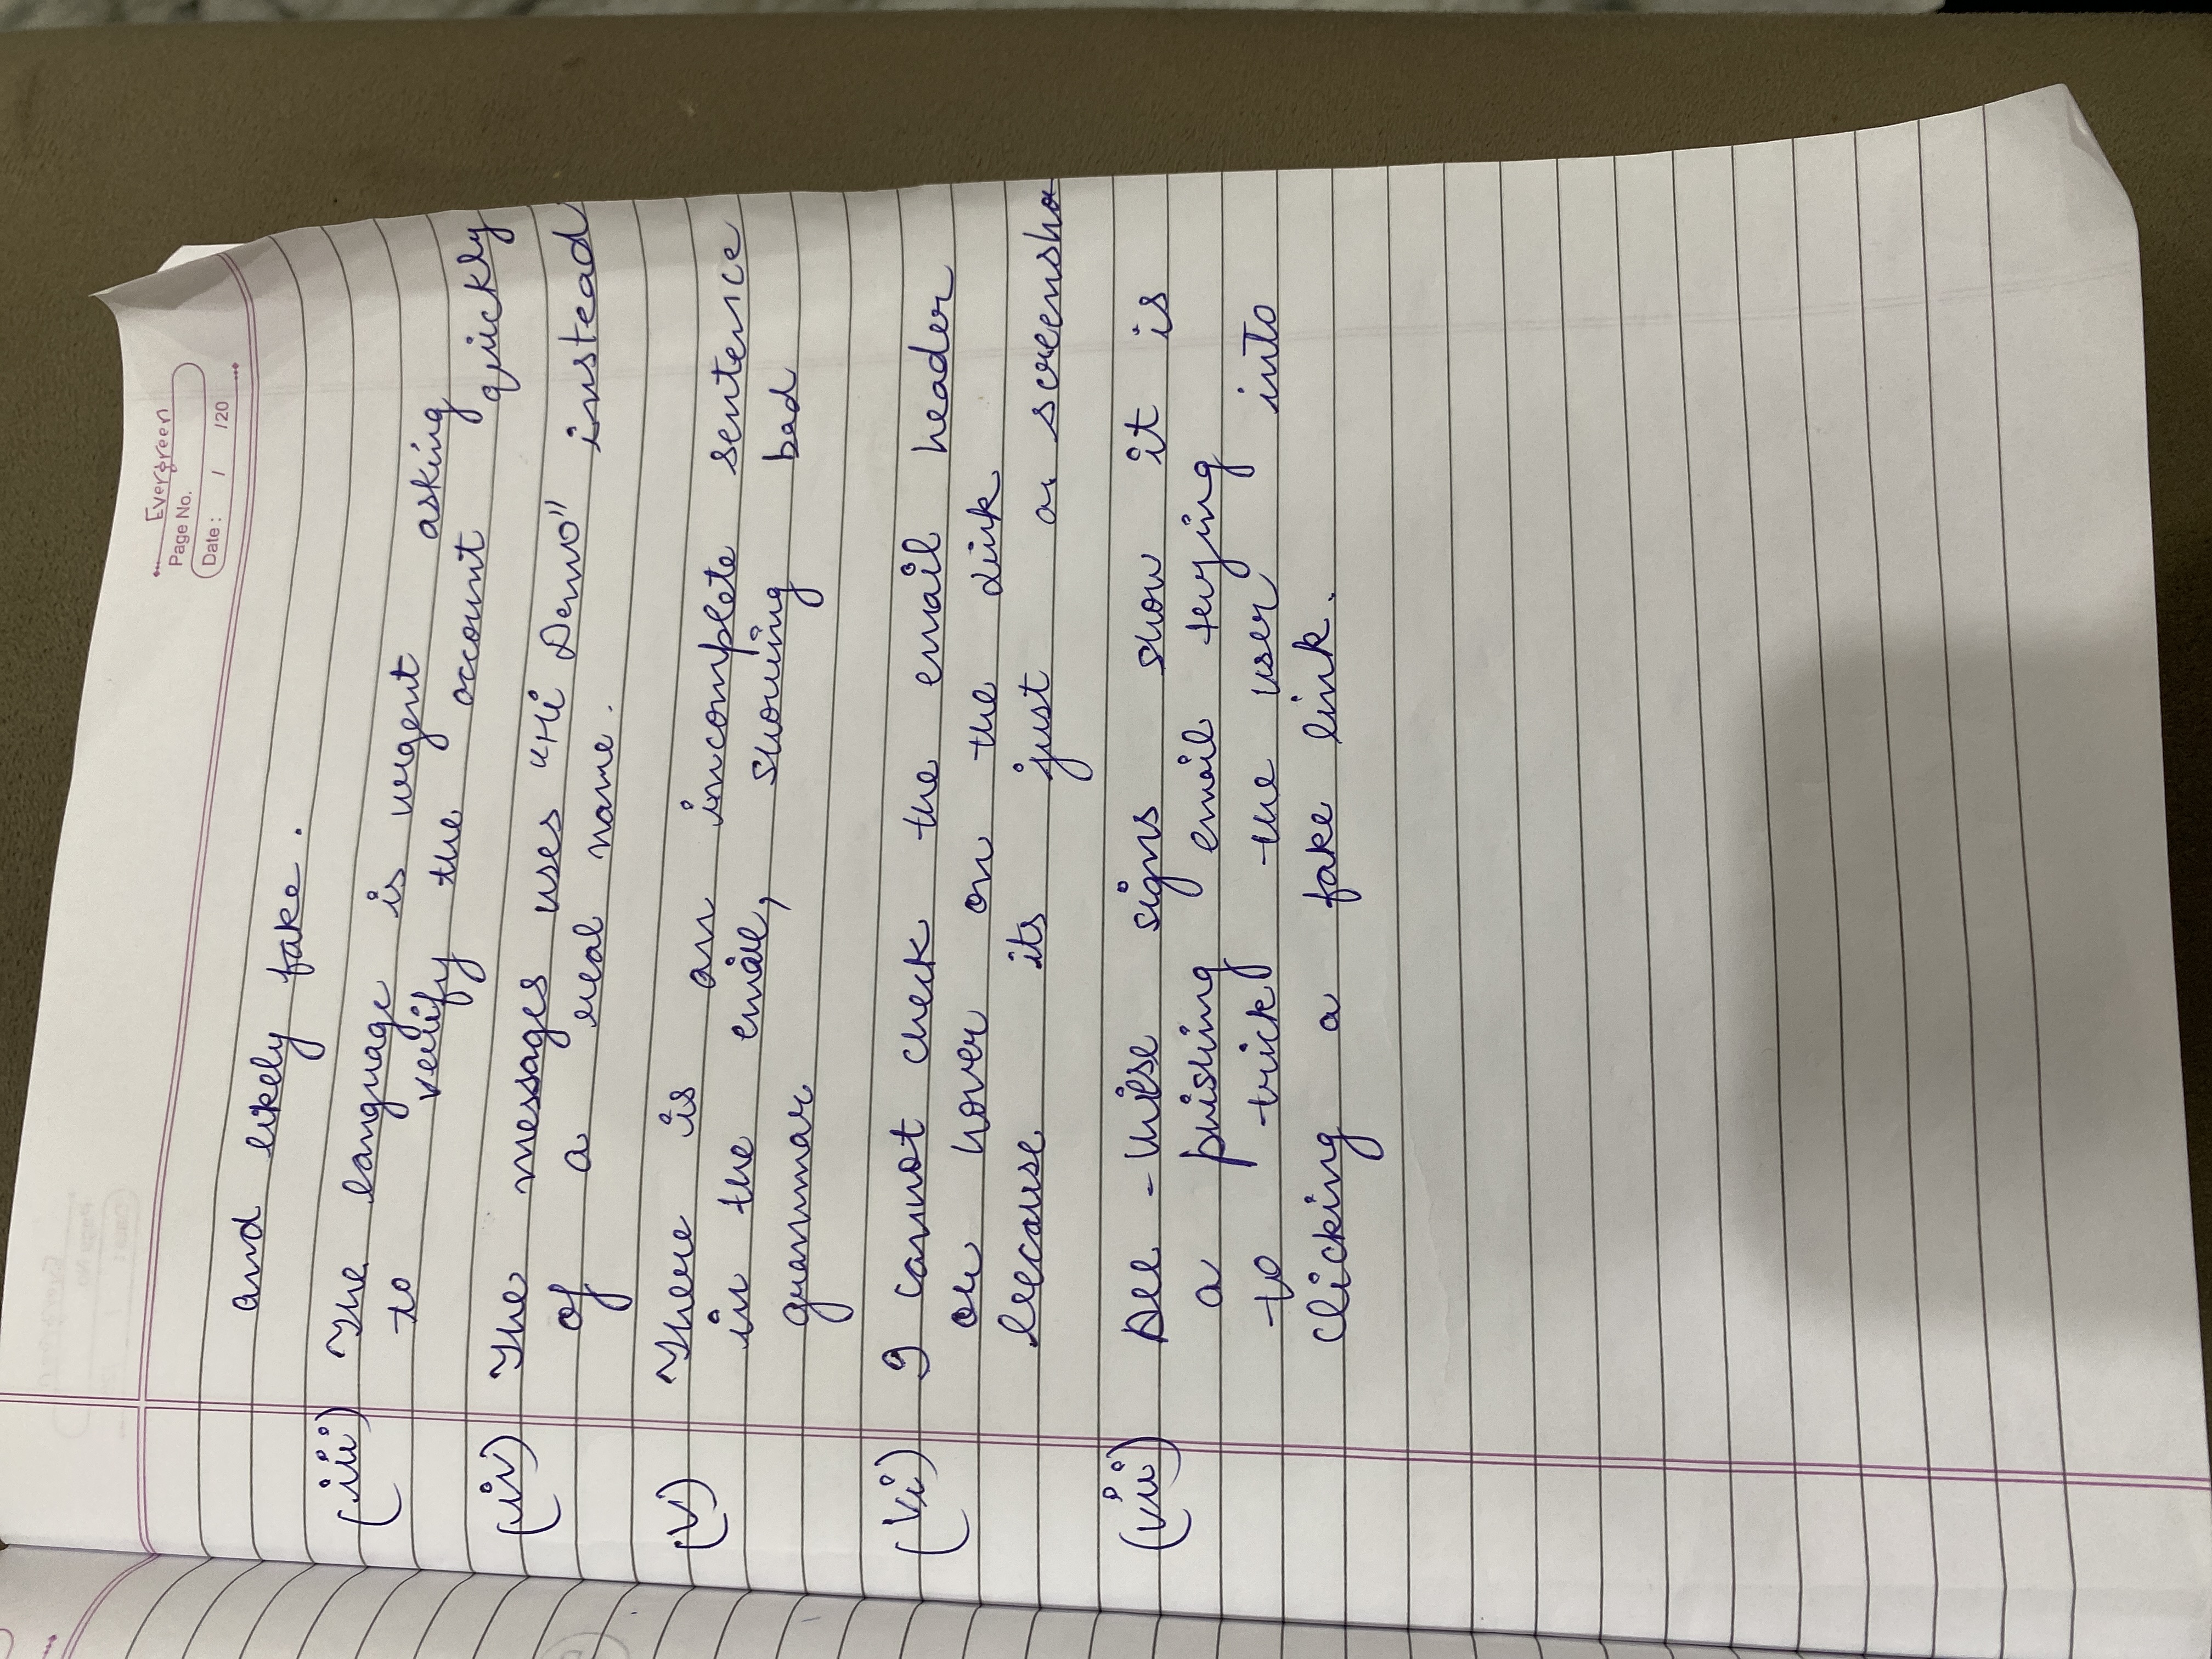 Evergreen
Page No.
Date : / /20
and likely fake.
(iii) The language is urgent asking
to verify the account quickly
(iv) The messages uses "Hi Demo" instead
of a real name.
(v) There is an incomplete sentence
in the email, showing bad
grammar
(vi) I cannot check the email header
or hover on the Link
because its just a screensho
(vii) All these signs show it is
a phishing email trying
to trick the user into
clicking a fake link.